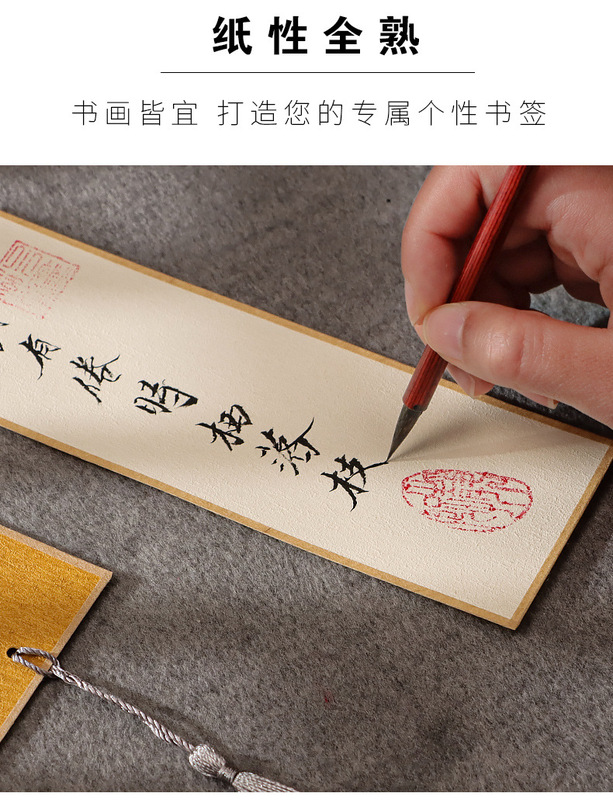 纸性全熟
书画皆宜 打造您的专属个性书签
有倦時栖 枝